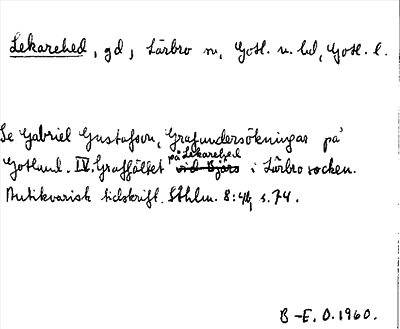 Lekarehed, gd, Lärbro sn, Gotl. n. hd, Gotl. l.
Se Gabriel Gustafson, Grafundersökningar på
Gotland. IV. Graffältet på Lekarehed i Lärbro socken.
Antikvarisk tidskrift. Sthlm. 8:4, s. 74.
B-E. O. 1960.